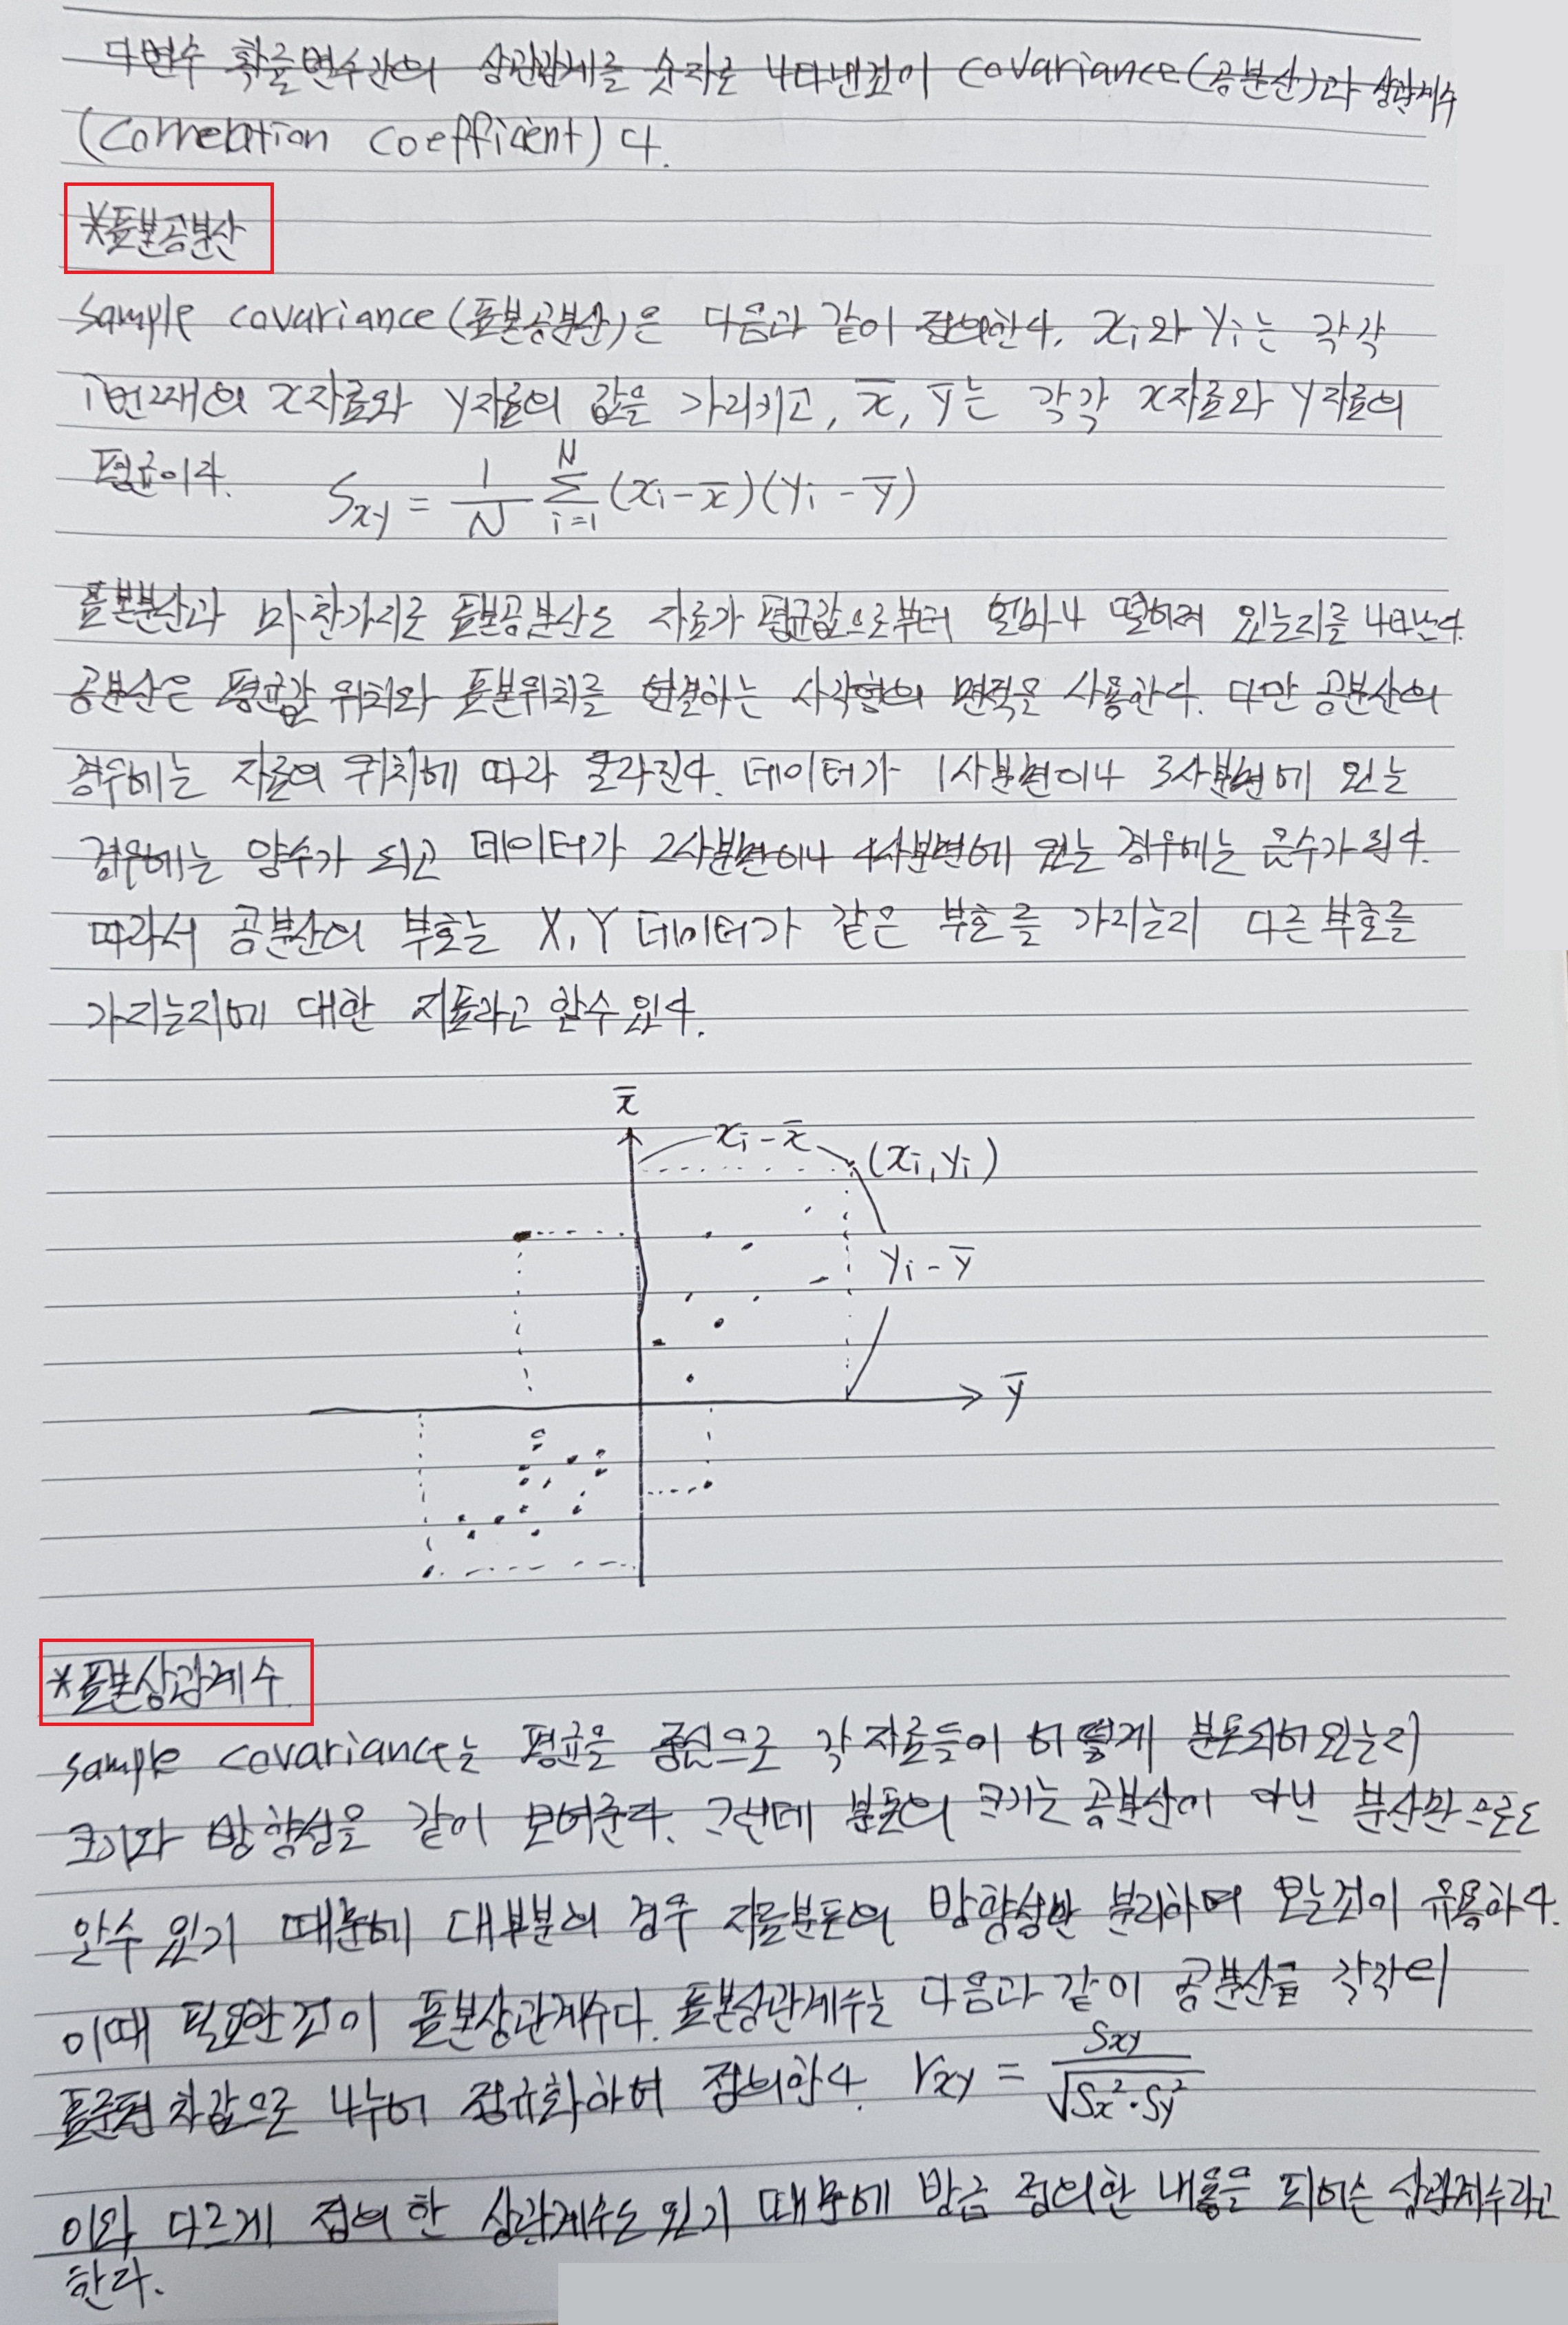 다변수 확률변수간의 상관관계를 숫자로 나타낸것이 covariance(공분산)과 상관계수
(Correlation coefficient)다.
*표본공분산
sample covariance(표본공분산)은 다음과 같이 정의한다. xi와 yi는 각각
i번째의 x자료와 y자료의 값을 가리키고, x̅, y̅는 각각 x자료와 y자료의
평균이다. Sxy = 1/N Σ_{i=1}^{N} (xi-x̅)(yi-y̅)
표본분산과 마찬가지로 표본공분산도 자료가 평균값으로부터 얼마나 떨어져 있는지를 나타낸다.
공분산은 평균값 위치와 표본위치를 연결하는 사각형의 면적을 사용한다. 다만 공분산의
경우에는 자료의 위치에 따라 달라진다. 데이터가 1사분면이나 3사분면에 있는
경우에는 양수가 되고 데이터가 2사분면이나 4사분면에 있는 경우에는 음수가 된다.
따라서 공분산의 부호는 X, Y 데이터가 같은 부호를 가지는지 다른 부호를
가지는지에 대한 지표라고 할수있다.
x̅
xi-x̅
(xi, yi)
yi-y̅
y̅
*표본상관계수
sample covariance는 평균을 중심으로 각 자료들이 어떻게 분포되어있는지
크기와 방향성을 같이 보여준다. 그런데 분포의 크기는 공분산이 아닌 분산만으로도
알수 있기 때문에 대부분의 경우 자료분포의 방향성만 분리하여 보는것이 유용하다.
이때 필요한것이 표본상관계수다. 표본상관계수는 다음과 같이 공분산을 각각의
표준편차값으로 나누어 정규화하여 정의한다. rxy = Sxy/√(Sx²·Sy²)
이와 다르게 정의한 상관계수도 있기 때문에 방금 정의한 내용을 피어슨 상관계수라고
한다.